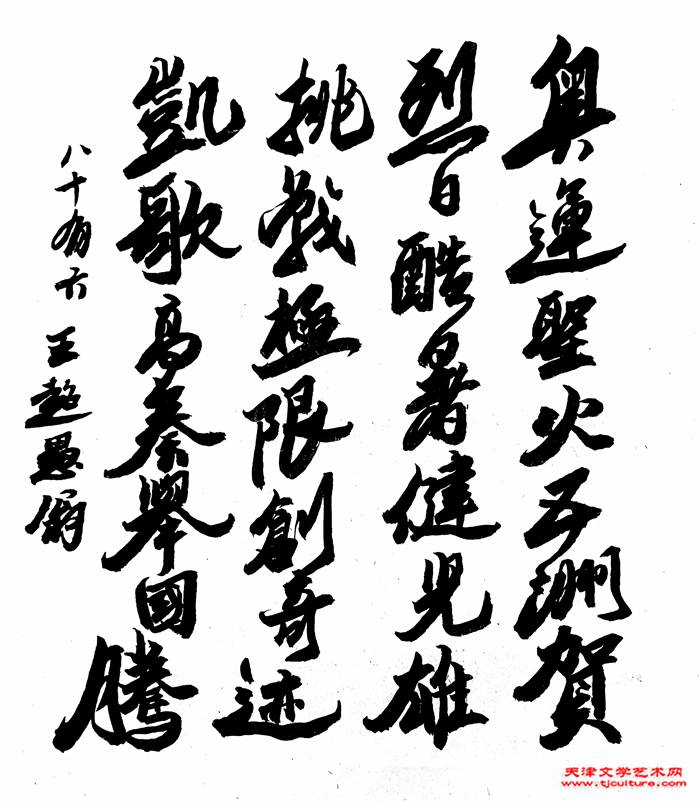 奥運聖火五洲賀
烈日酷暑健児雄
挑戰極限創奇迹
凱歌高奏舉國騰
八十有六 王超愚翁
天津文学艺术网
www.tjculture.com